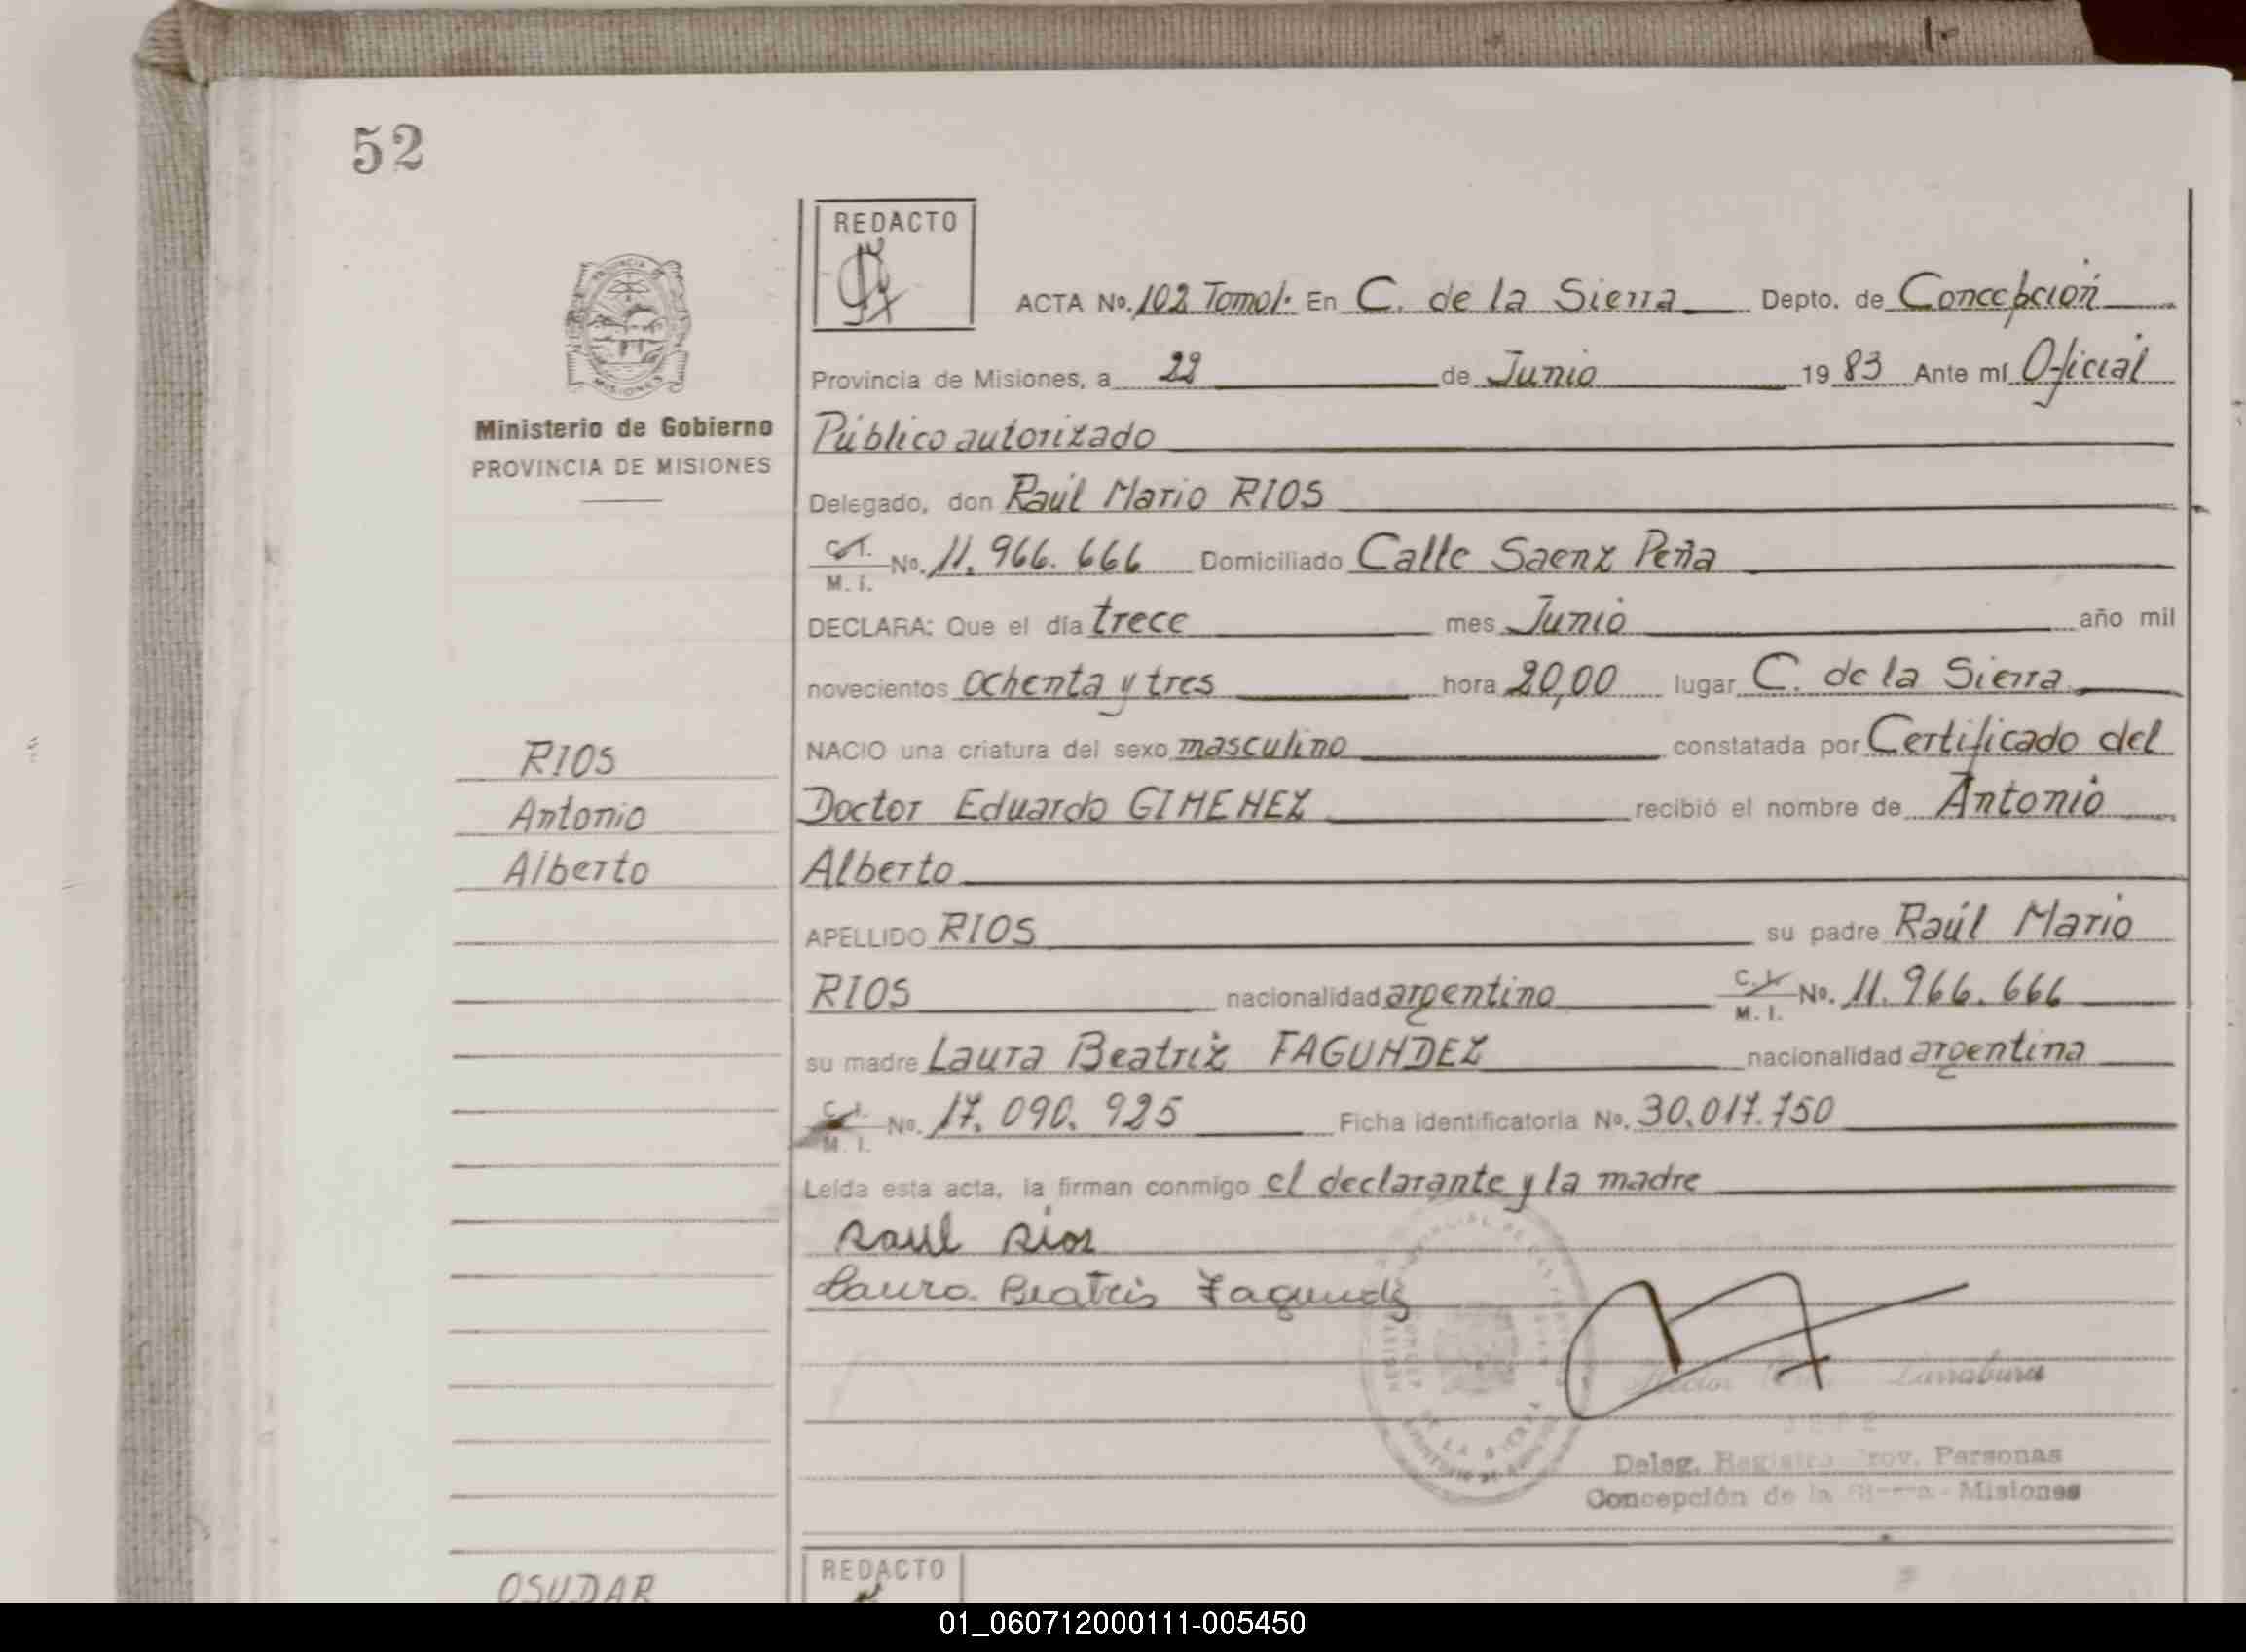 1.
52
REDACTO
ACTA No. 102 Tomo 1. En C. de la Sierra Depto. de Concepción
Provincia de Misiones, a 22 de Junio 1983 Ante mí Oficial
Público autorizado
Ministerio de Gobierno
PROVINCIA DE MISIONES
Delegado, don Raúl Mario RIOS
C.I. M.I. No. 11.966.666 Domiciliado Calle Saenz Peña
DECLARA: Que el día trece mes Junio año mil
novecientos ochenta y tres hora 20,00 lugar C. de la Sierra
NACIO una criatura del sexo masculino constatada por Certificado del
Doctor Eduardo GIMENEZ recibió el nombre de Antonio
Alberto
RIOS
Antonio
Alberto
APELLIDO RIOS su padre Raúl Mario
RIOS nacionalidad argentino C.I. M.I. No. 11.966.666
su madre Laura Beatriz FAGUNDEZ nacionalidad argentina
C.I. M.I. No. 17.090.925 Ficha identificatoria No. 30.017.750
Leída esta acta, la firman conmigo el declarante y la madre
Raul Rios
Laura Beatris Fagundez
DE LA SIERRA
Larraburu
JEFE
Deleg. Registro Prov. Personas
Concepción de la Sierra - Misiones
REDACTO
OSUDAR
01_060712000111-005450